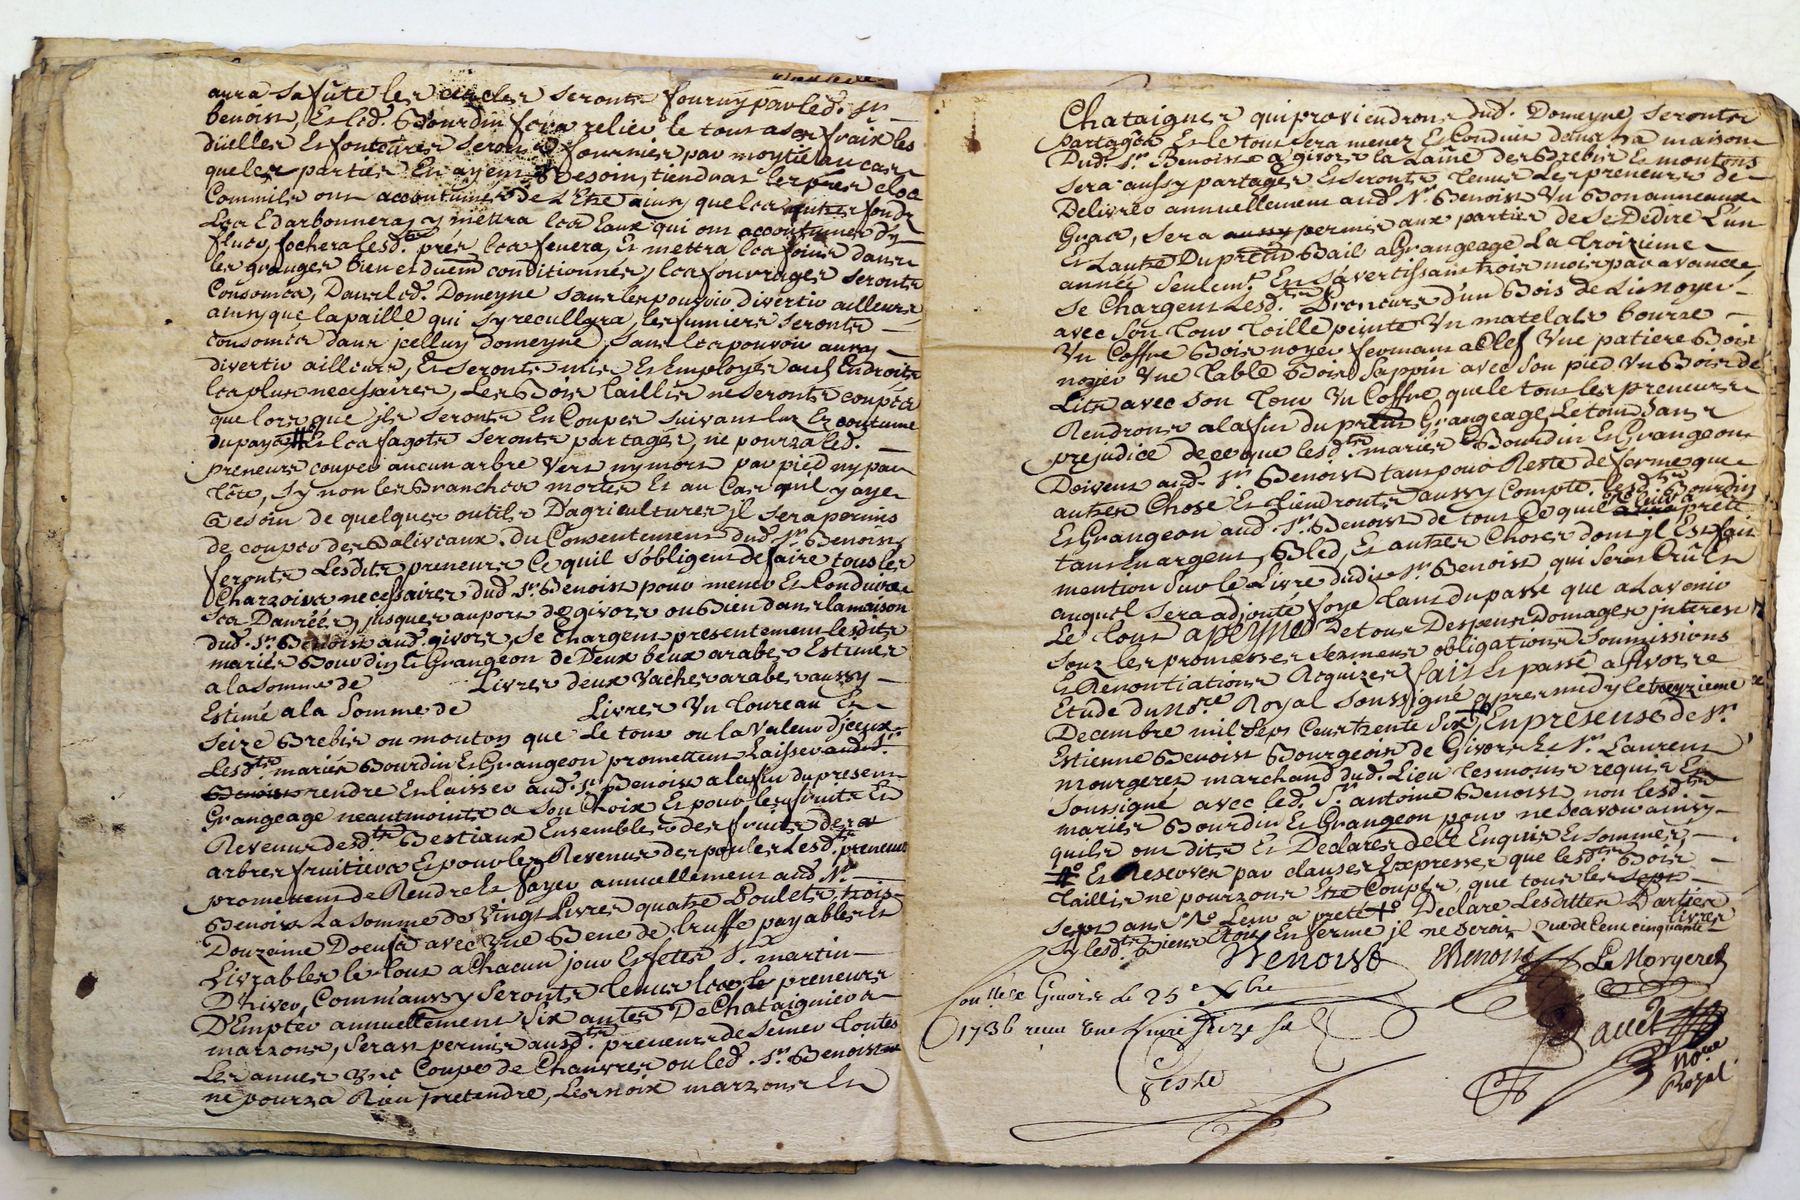 aura sa fute les cercles seronts fourny par led. sr
benoist, Et led. Bourdin fera relier le tout a ses fraix les
düelles Et fonteures seronts fournies par moytié au cas
que les parties En ayent Besoin, tiendrat les prés clos
Comme ils ont accoutumés de L'Etre ainsy que les autres fonds
Les Edarbonneras, y mettra les Eaux qui ont accoutumés d'y
fluer, fochera lesd.ts prés les fenera, Et mettra les foins dans
les granges bien et duëm conditionnés, les fourrages seronts
Consomés, Dans led. Domeyne sans les pouvoir divertir ailleurs,
ainsy que la paille qui sy recullyra, les fumiers seronts
consomés dans jcelluy domeyne, sans les pouvoir aussy
divertir ailleurs, Et seronts mis Et Employés aux Endroits
les plus necessaires, Les Bois taillis ne seronts coupés
que lors que jls seronts En Coupes suivant lus Et coutume
du pays # Et les fagots seronts partagés, ne pourra led.
preneurs couper aucun arbre vert ny mort par pied ny par
tête, sy non les Branches mortes Et au Cas quil y aye
Besoin de quelques outils D'agricultures jl sera permis
de couper des Baliveaux du Consentement dud. sr Benoist,
feronts Lesdits preneurs Ce quil s'obligent de faire tous les
Charrois necessaires dud. Sr. Benoist pour mener Et Conduire
ses Danrées, jusques au port de givors ou Bien dans la maison
dud. Sr. Benoist aud. givors, se chargent presentement lesdits
mariés Bourdin Et Grangeon de Deux beux arabes Estimés
a la somme de Livres deux vaches arabes aussy
Estimé a la Somme de Livres Un toureau Et
seize Brebis ou moutons que Le tout ou la valeur d'jceux
Lesd.ts mariés Bourdin Et Grangeon promettent Laisser aud. Sr.
Benoist rendre Et laisser aud. Sr. Benoist a la fin du present
Grangeage neautmoints a son choix Et pour les fruits Et
Revenus desd.ts Bestiaux Ensembles des fruits des
arbres fruitiers Et pour les Revenus des poules Lesd.ts preneurs
promettent de Rendre Et Payer annuellement aud. Sr.
Benoist La somme de Vingt Livres quatre Poulets, trois
Douzaine Doeufs avec une Bene de truffe payables Et
Livrables le tout a chacun jour Et fetes St. martin
D'hiver, Comm'aussy seronts tenus les preneurs
D'Empter annuellement six antes De Chataigniers
marrons, seras permis ausd.ts preneurs de semer toutes
Les années une Coupe de Chanvres ou led. Sr. Benoist
ne pourra Rien pretendre, Les noix marrons Et
Chataignes qui proviendrons dud. Domeyne, seronts
partagés Et le tout sera mener Et Conduit dans la maison
Dud. Sr. Benoist a givors la Laine des Brebis Et moutons
sera aussy partagés Et seronts tenus Les preneurs de
Delivrer annuellement aud. Sr. Benoist Un Bon anneaux
Gras, sera aussy permis aux parties de se Dedire L'un
Et L'autre Du prent Bail a Grangeage La troisieme
année Seulemt. En s'avertissant trois mois par avance,
se Chargent Lesd.ts Preneurs d'un Bois de Lit noyer
avec son tour toille peinte Un matelats bourre
Un Coffre Bois noyer fermant a Clef Une patiere Bois
noyer Une table Bois sappin avec son pied Un Bois de
Lits avec son tour Un Coffre, que le tout les preneurs
Rendrons a la fin du prent Grangeage, Le tout sans
prejudice de ce que lesd.ts mariés Bourdin Et Grangeon
Doivent aud. Sr. Benoist tant pour Reste de ferme que
autres Chose Et tiendronts aussy Compte lesd.ts Bourdin
Et Grangeon aud. Sr. Benoist de tout Ce quil preté
tant En argent, Bled, Et autres Choses dont jl Est fait
mention sur le Livre dudit Sr. Benoist, qui seras Crû Et
auquel sera adjouté foye tant du passé que a Lavenir
Le tout a peyne de tous Despens Domages jnterest
sous les promesses serments obligations Soumissions
Et Renontiations Requizes fait Et passé a Givors
Etude du No.re Royal Soussigné apres midy le treyzieme
Decembre mil Sept Cent trente Six, En presense de Sr.
Estienne Benoist Bourgeois de Givors Et Sr. Laurent
mourgeres marchand dud. Lieu tesmoins requis Et
Soussigné avec led. Sr. antoine Benoist non lesd.ts
mariés Bourdin Et Grangeon pour ne scavoir ainsy
quils ont dits Et Declarés de ce Enquis Et sommés,
# Et Reserver par clauses Expresses que lesd.ts Bois
taillis ne pourrons être Coupés, que tous les sept
sept ans Declare Lesdittes Parties
sy lesd.ts Biens Etois En ferme jl ne serois que de Cent cinquante livres
Benoist EBenoist Le Morgeres
Con.llé a Givors Le 25e Xbre
1736 receu une Livre seize s.
favet
Nore
Royal